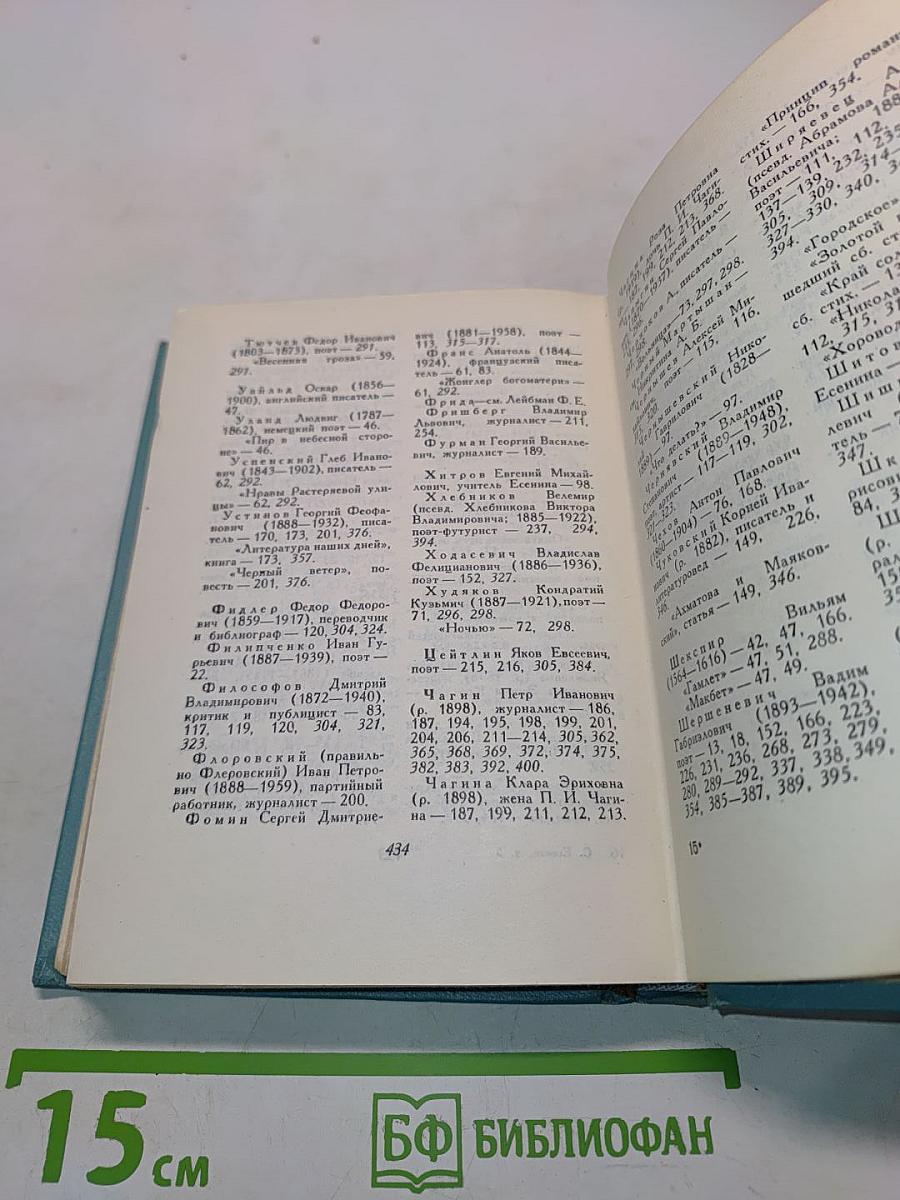 Тютчев Федор Иванович
(1803—1873), поэт — 291.
«Весенняя гроза» — 59,
291.
Уайльд Оскар (1856—
1900), английский писатель —
47.
Уланд Людвиг (1787—
1862), немецкий поэт — 46.
«Пир в небесной сторо-
не» — 46.
Успенский Глеб Ивано-
вич (1843—1902), писатель —
62, 292.
«Нравы Растеряевой ули-
цы» — 62, 292.
Устинов Георгий Феофа-
нович (1888—1932), писа-
тель — 170, 173, 201, 376.
«Литература наших дней»,
книга — 173, 357.
«Черный ветер», по-
весть — 201, 376.
Фидлер Федор Федоро-
вич (1859—1917), переводчик
и библиограф — 120, 304, 324.
Филипченко Иван Гу-
рьевич (1887—1939), поэт —
22.
Философов Дмитрий
Владимирович (1872—1940),
критик и публицист — 83,
117, 119, 120, 304, 321,
323.
Флоровский (правиль-
но Флеровский) Иван Петро-
вич (1888—1959), партийный
работник, журналист — 200.
Фомин Сергей Дмитрие-
вич (1881—1958), поэт —
113, 315—317.
Франс Анатоль (1844—
1924), французский писа-
тель — 61, 83.
«Жонглер богоматери» —
61, 292.
Фрида — см. Лейбман Ф. Е.
Фришберг Владимир
Львович, журналист — 211,
254.
Фурман Георгий Василье-
вич, журналист — 189.
Хитров Евгений Михай-
лович, учитель Есенина — 98.
Хлебников Велемир
(псевд. Хлебникова Виктора
Владимировича; 1885—1922),
поэт-футурист — 237, 294,
394.
Ходасевич Владислав
Фелицианович (1886—1936),
поэт — 152, 327.
Худяков Кондратий
Кузьмич (1887—1921), поэт —
71, 296, 298.
«Ночью» — 72, 298.
Цейтлин Яков Евсеевич,
поэт — 215, 216, 305, 384.
Чагин Петр Иванович
(р. 1898), журналист — 186,
187, 194, 195, 198, 199, 201,
204, 206, 211—214, 305, 362,
365, 368, 369, 372, 374, 375,
382, 383, 392, 400.
Чагина Клара Эриховна
(р. 1898), жена П. И. Чаги-
на — 187, 199, 211, 212, 213.
434
Роза Петровна
дочь П. И. Чаги-
199, 212, 213, 368.
Сергей Павло-
писатель —
А., писатель —
73, 297, 298.
Мартышан —
Б.
Алексей Ми-
поэт — 115, 116.
Чернышевский Нико-
лай Гаврилович (1828—
1889) — 97.
«Что делать?» — 97.
Чернявский Владимир
Степанович (1889—1948),
артист — 117—119, 302,
323.
Чехов Антон Павлович
(1860—1904) — 76, 168.
Чуковский Корней Ива-
нович (р. 1882), писатель и
литературовед — 149, 226,
346.
«Ахматова и Маяков-
ский», статья — 149, 346.
Шекспир Вильям
(1564—1616) — 42, 47, 166.
«Гамлет» — 47, 51, 288.
«Макбет» — 47, 49.
Шершеневич Вадим
Габриэлович (1893—1942),
поэт — 13, 18, 152, 166, 223,
226, 231, 236, 268, 273, 279,
280, 289—292, 337, 338, 349,
354, 385—387, 389, 395.
15*
«Принцип романт
стих. — 166, 354.
Ширяевец А
(псевд. Абрамова Ал
Васильевича; 188
поэт — 111, 112,
137—139, 232, 235
305, 309, 314—
327—330, 340, 3
394.
«Городское»
«Золотой
шедший сб. ст
«Край сол
сб. стих. — 13
«Никола
112, 315, 31
«Хоровод
Шитов
Есенина —
Шиш
левич (
тель —
347.
Шк
рисови
84, 3
Ш
(р.
рал
15
35
15 см
БФ БИБЛИОФАН